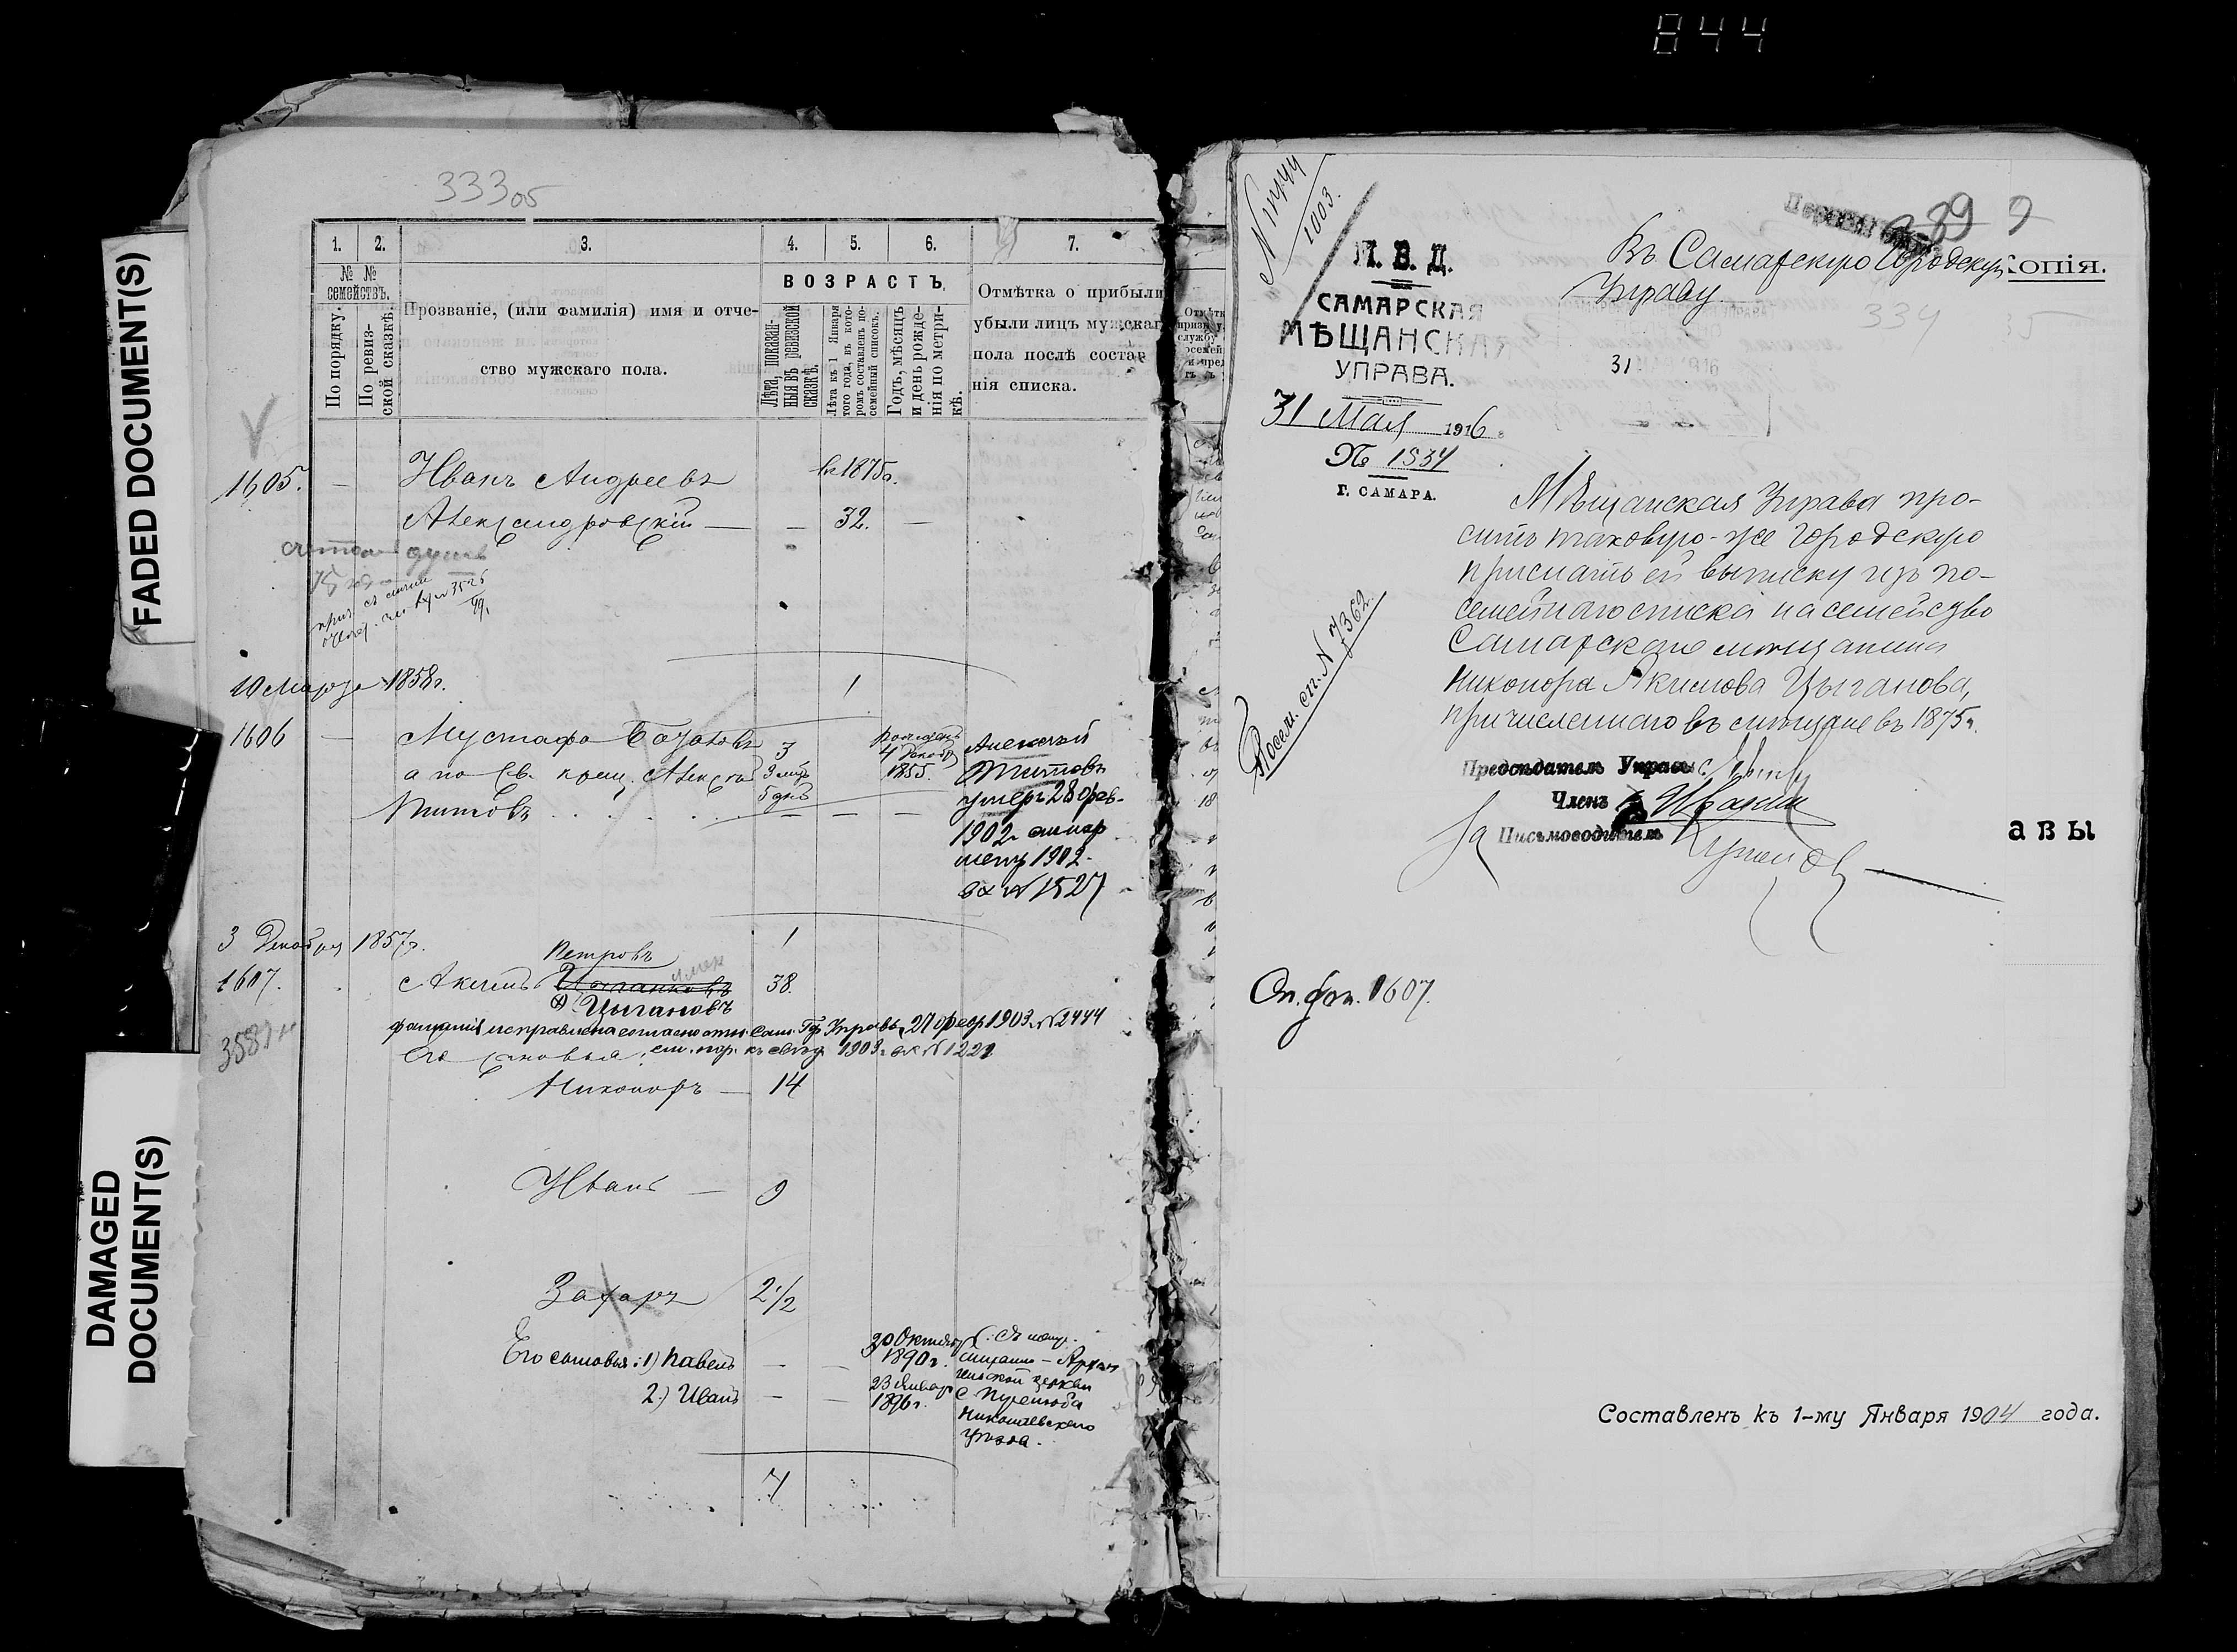 844
FADED DOCUMENT(S)
DAMAGED
DOCUMENT(S)
333 об
1. 2. 3. 4. 5. 6. 7.
№ №
семействъ.
По порядку.
По ревиз-
ской сказкѣ.
Прозваніе, (или фамилія) имя и отче-
ство мужскаго пола.
ВОЗРАСТЪ.
Лѣта, показан-
ныя въ ревизской
сказкѣ.
Лѣта къ 1 Января
того года, въ кото-
ромъ составленъ по-
семейный списокъ.
Годъ, мѣсяцъ
и день рожде-
нія по метри-
кѣ.
Отмѣтка о прибыли
убыли лицъ мужскаг
пола послѣ состав
нія списка.
1605. — Иванъ Андреевъ въ 1875 г.
Александровскій — — 32. —
10 Марта 1858 г. 1
1606 — Мустафа
а по св. крещ. Алексѣй
Титовъ
3
9 мѣс
5 дн
рожденъ
4 Декабр
1855.
Алексѣй
Титовъ
умеръ 28 фев-
1902
1902
вх № 1527
3 Декабря 1857 г. 1
Петровъ
1607. Акимъ Цыганковъ 38.
Цыгановъ
фамилія исправлена согласно отн. Сам. Гор. Управы, 27 февр 1903 г. № 2444
Его сыновья, 1903 г. вх № 1221
Никоноръ — 14
Иванъ — 9
Захаръ 2 1/2
Его сыновья: 1) Павелъ — — 30 Октября
1890 г.
2.) Иванъ — — 23 Январ
1896 г.
церкви
Николаевскаго
уѣзда.
7
М. В. Д.
САМАРСКАЯ
МѢЩАНСКАЯ
УПРАВА.
31 Мая 1916 г.
№ 1534
Г. САМАРА.
Въ Самарскую Городскую
Управу.
Копія.
334
31
Мѣщанская Управа про-
ситъ таковую-же Городскую
прислать ей выписку изъ по-
семейнаго списка на семейство
Самарскаго мѣщанина
Никонора Акимова Цыганова,
причисленнаго въ мѣщане въ 1875 г.
Предсѣдатель Управы
Членъ
За Письмоводителя
авы
Посем. сп. № 7362.
1607.
Составленъ къ 1-му Января 1904 года.